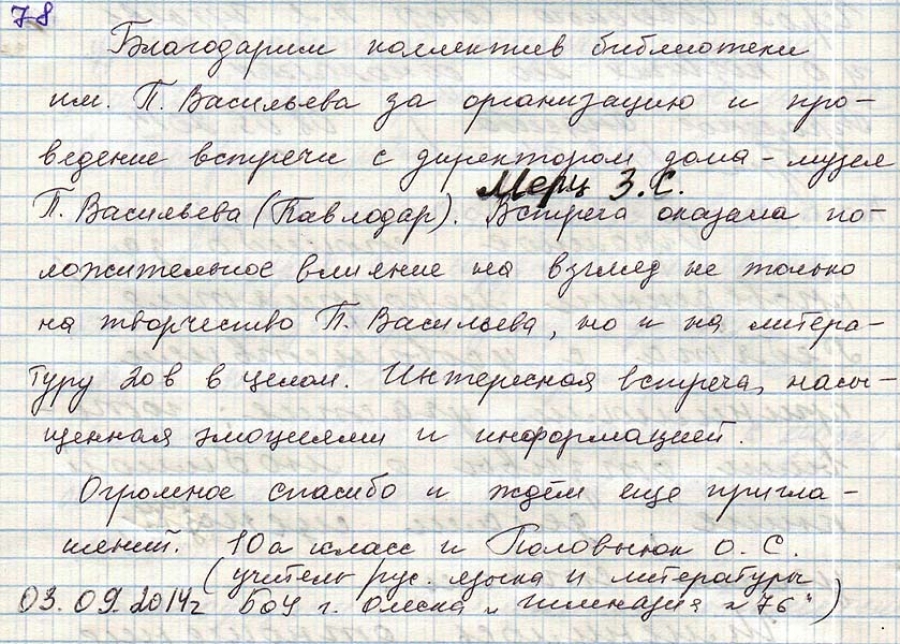 78
Благодарим коллектив библиотеки
им. П. Васильева за организацию и про-
ведение встречи с директором дома-музея
Мерц З.С.
П. Васильева (Павлодар). Встреча оказала по-
ложительное влияние на взгляд не только
на творчество П. Васильева, но и на литера-
туру 20 в в целом. Интересная встреча, насы-
щенная эмоциями и информацией.
Огромное спасибо и ждём еще пригла-
шений. 10а класс и Половынюк О.С.
(учитель рус. языка и литературы
03.09.2014г БОУ г. Омска "Гимназия №76")